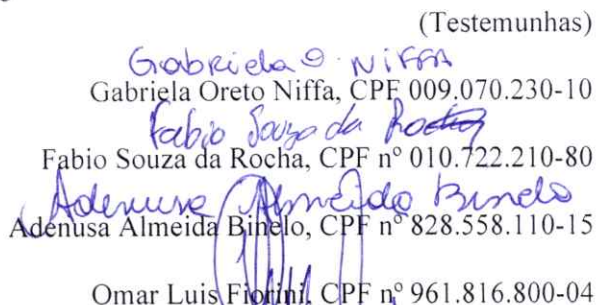 (Testemunhas)
Gabriela O. Niffa
Gabriela Oreto Niffa, CPF 009.070.230-10
Fabio Souza da Rocha
Fabio Souza da Rocha, CPF nº 010.722.210-80
Adenusa Almeida Binelo
Adenusa Almeida Binelo, CPF nº 828.558.110-15
Omar Luis Fiorini, CPF nº 961.816.800-04